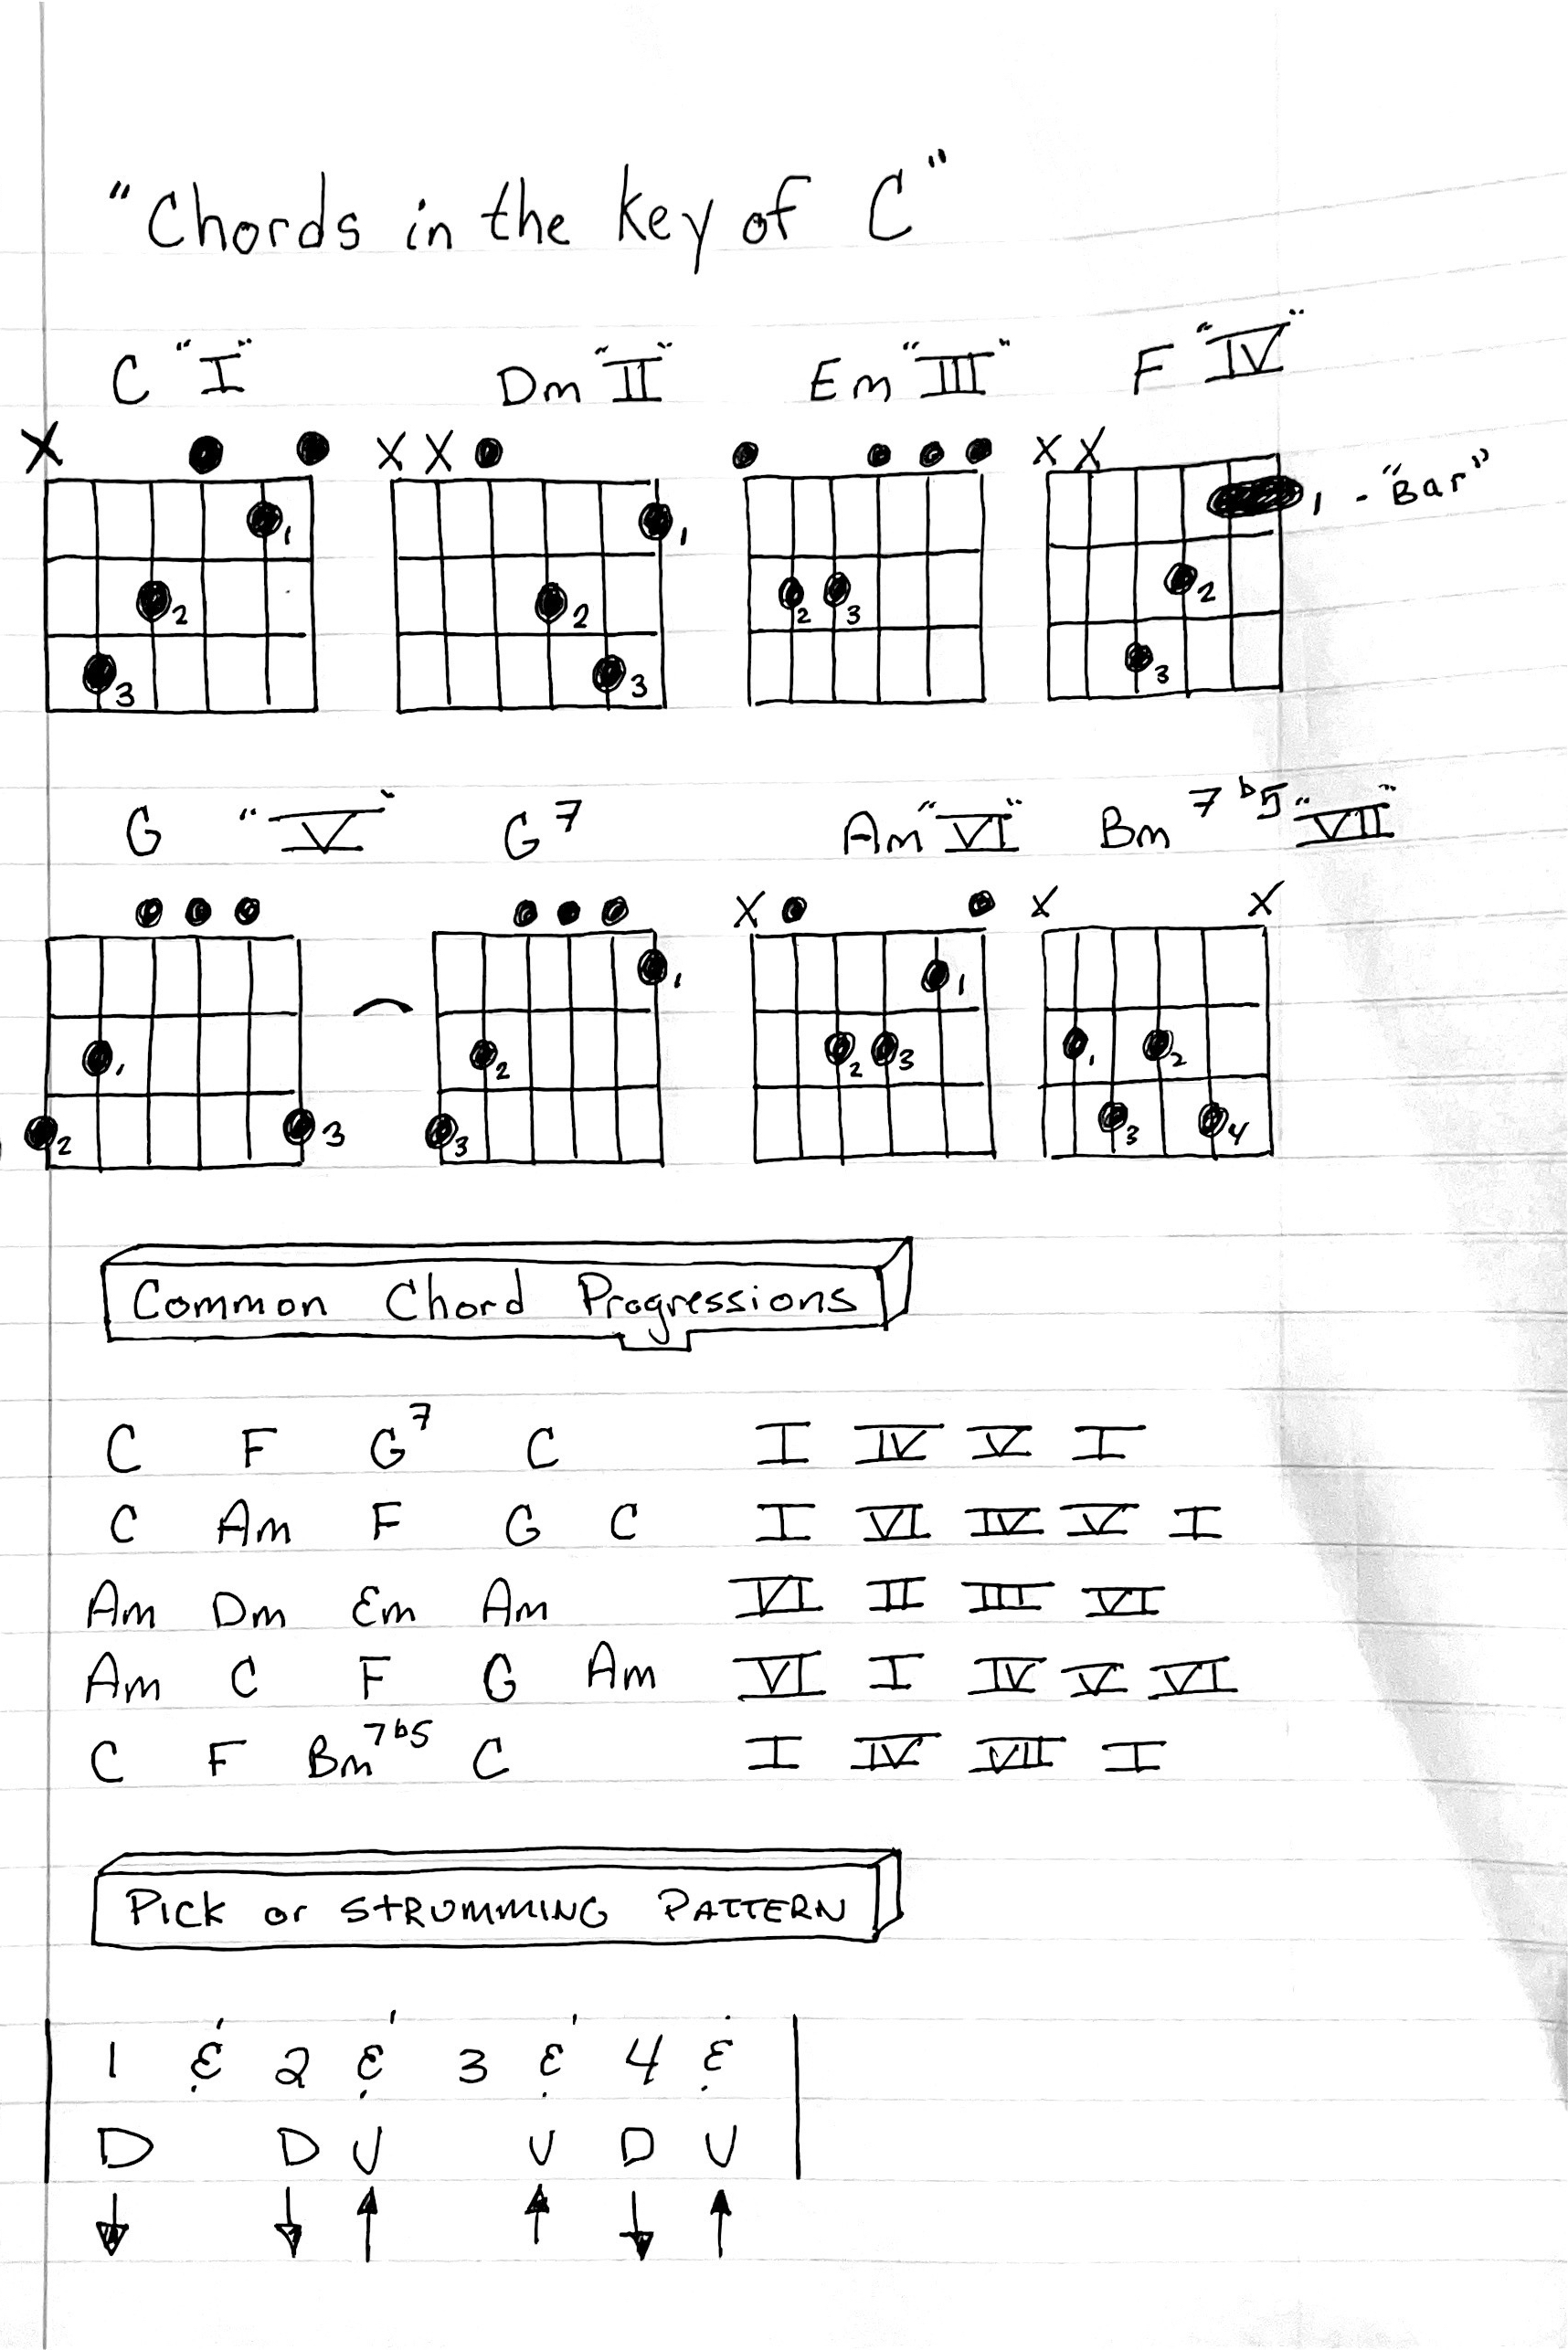 "Chords in the key of C"
C "I" Dm "II" Em "III" F "IV"
X X X X X
1 1 1 - "Bar"
2 2 2 3 2
3 3 3
G "V" G7 Am "VI" Bm 7b5 "VII"
X X X
1 1
1 2 2 3 1 2
2 3 3 3 4
Common Chord Progressions
C F G7 C I IV V I
C Am F G C I VI IV V I
Am Dm Em Am VI II III VI
Am C F G Am VI I IV V VI
C F Bm7b5 C I IV VII I
Pick or STRUMMING PATTERN
1 & 2 & 3 & 4 &
D D U U D U